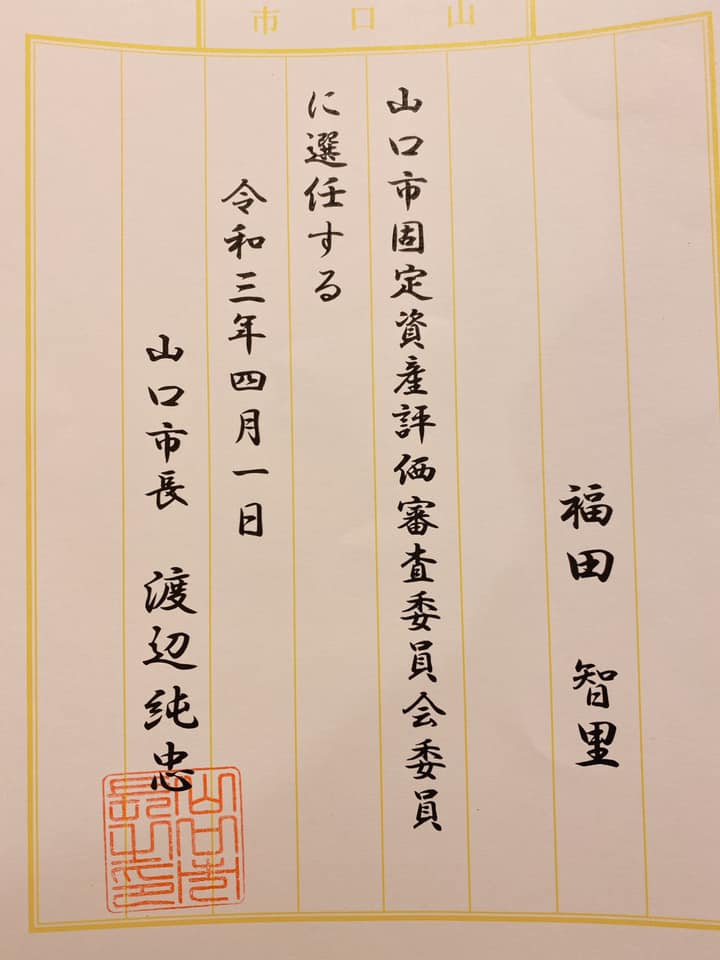 山口市
福田 智里
山口市固定資産評価審査委員会委員
に選任する
令和三年四月一日
山口市長 渡辺純忠
山口市長之印